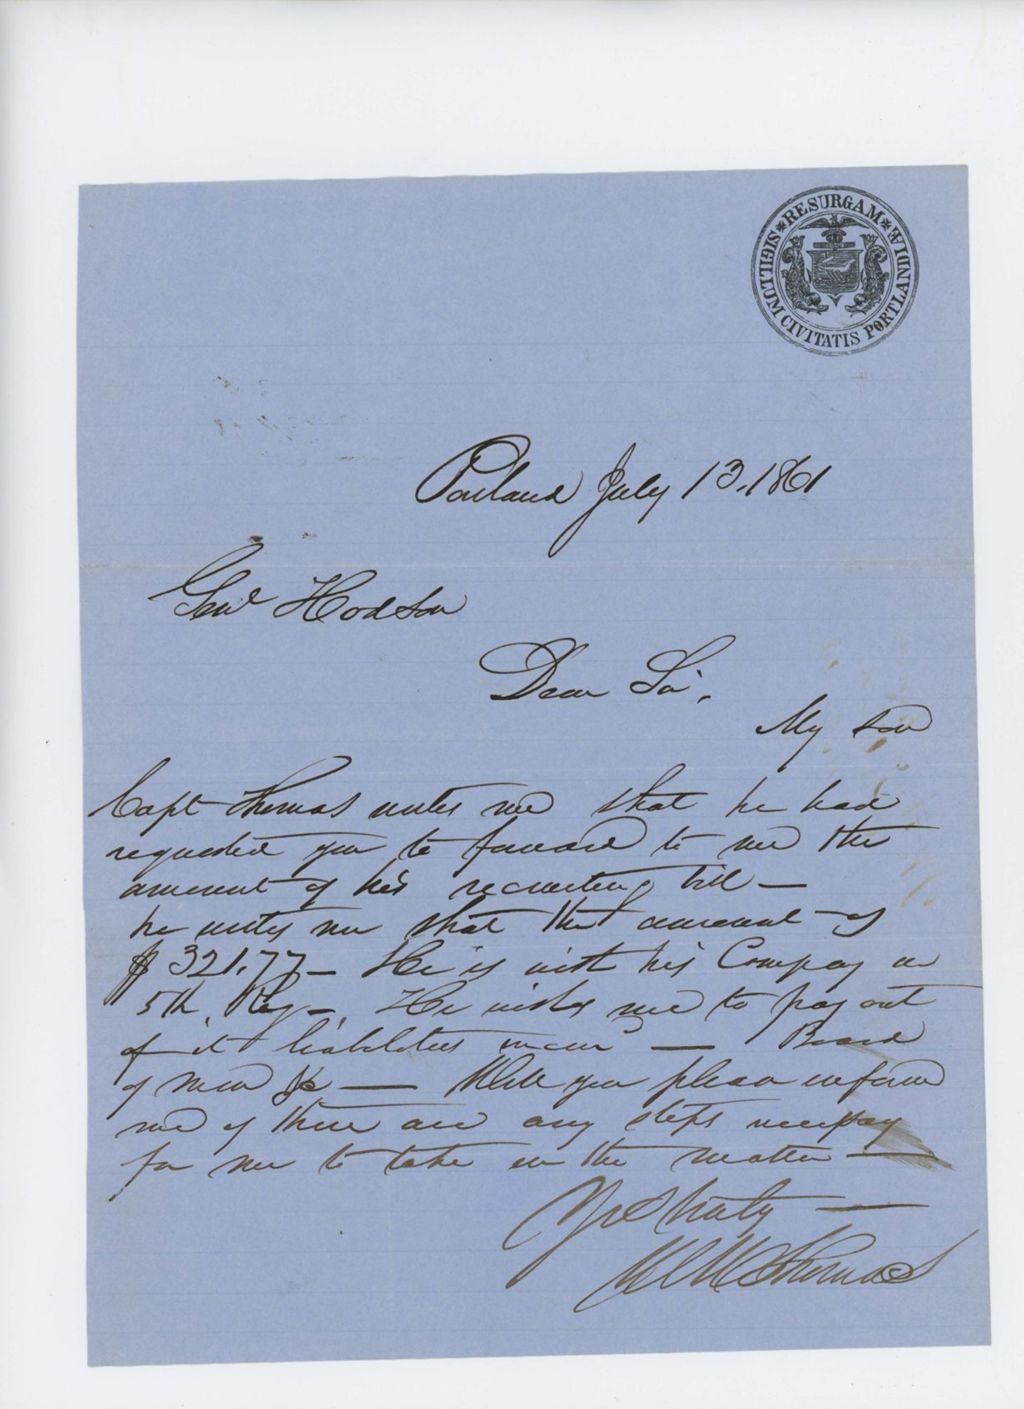 SIGILLUM CIVITATIS PORTLANDIA * RESURGAM *
Portland July 13. 1861
Genl Hodsdon
Dear Sir,
My son
Capt Thomas writes me that he had
requested you to forward to me the
amount of his recruiting bill —
he writes me that the amount of
$321.77 — He is with his Company in
5th. Reg —. He wishes me to pay out
of it liabilities incur — Board
of men &c — Will you please inform
me if there are any steps necessary
for me to take in the matter —
Yrs truly —
W W Thomas